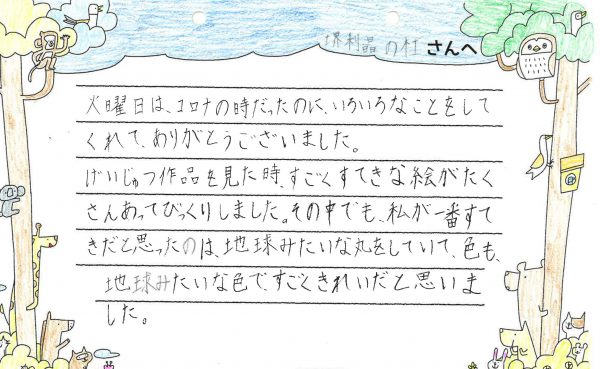 堺利晶の杜さんへ
火曜日は、コロナの時だったのに、いろいろなことをして
くれて、ありがとうございました。
げいじゅつ作品を見た時、すごくすてきな絵がたく
さんあってびっくりしました。その中でも、私が一番すて
きだと思ったのは、地球みたいな丸をしていて、色も、
地球みたいな色ですごくきれいだと思いま
した。